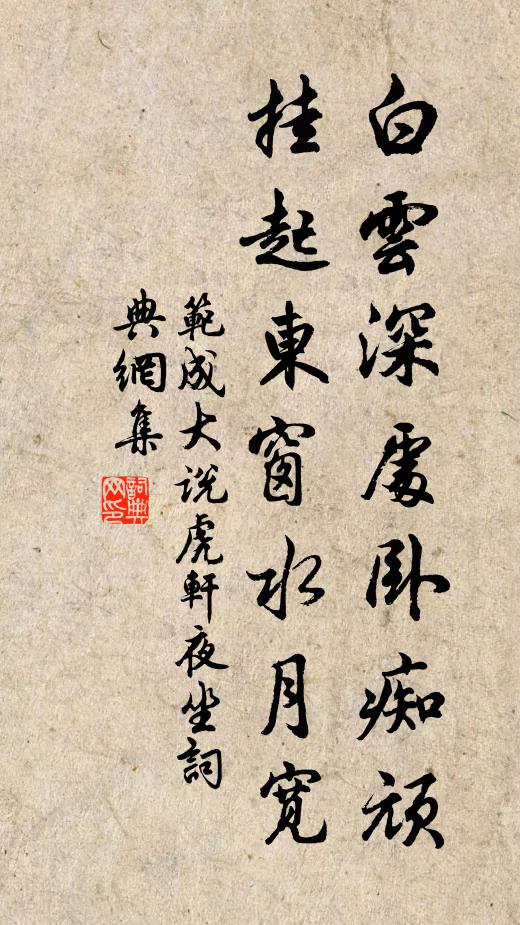 白雲深處卧痴頑
挂起東窗水月寬
範成大说虎軒夜坐詞
典網集
詞典網印